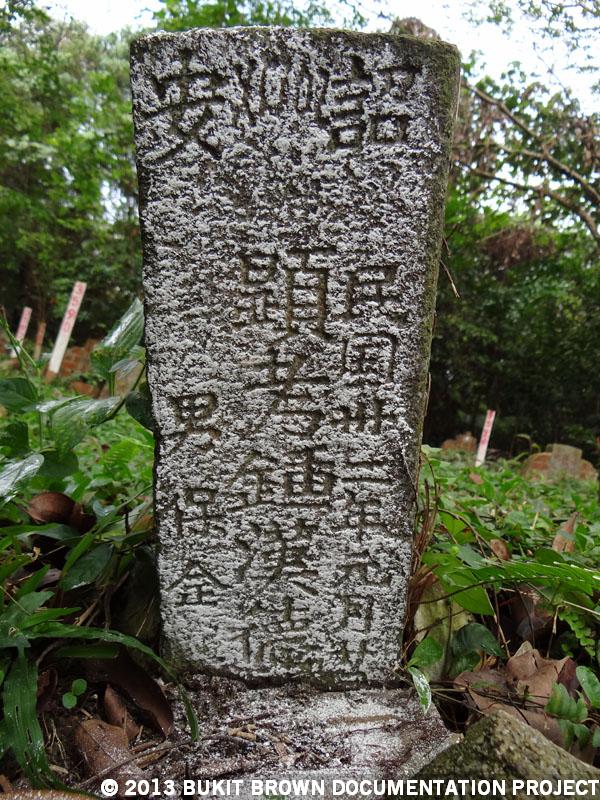 詔安
民國卅二年元月廿
顯考鍾漢德
男保金
© 2013 BUKIT BROWN DOCUMENTATION PROJECT